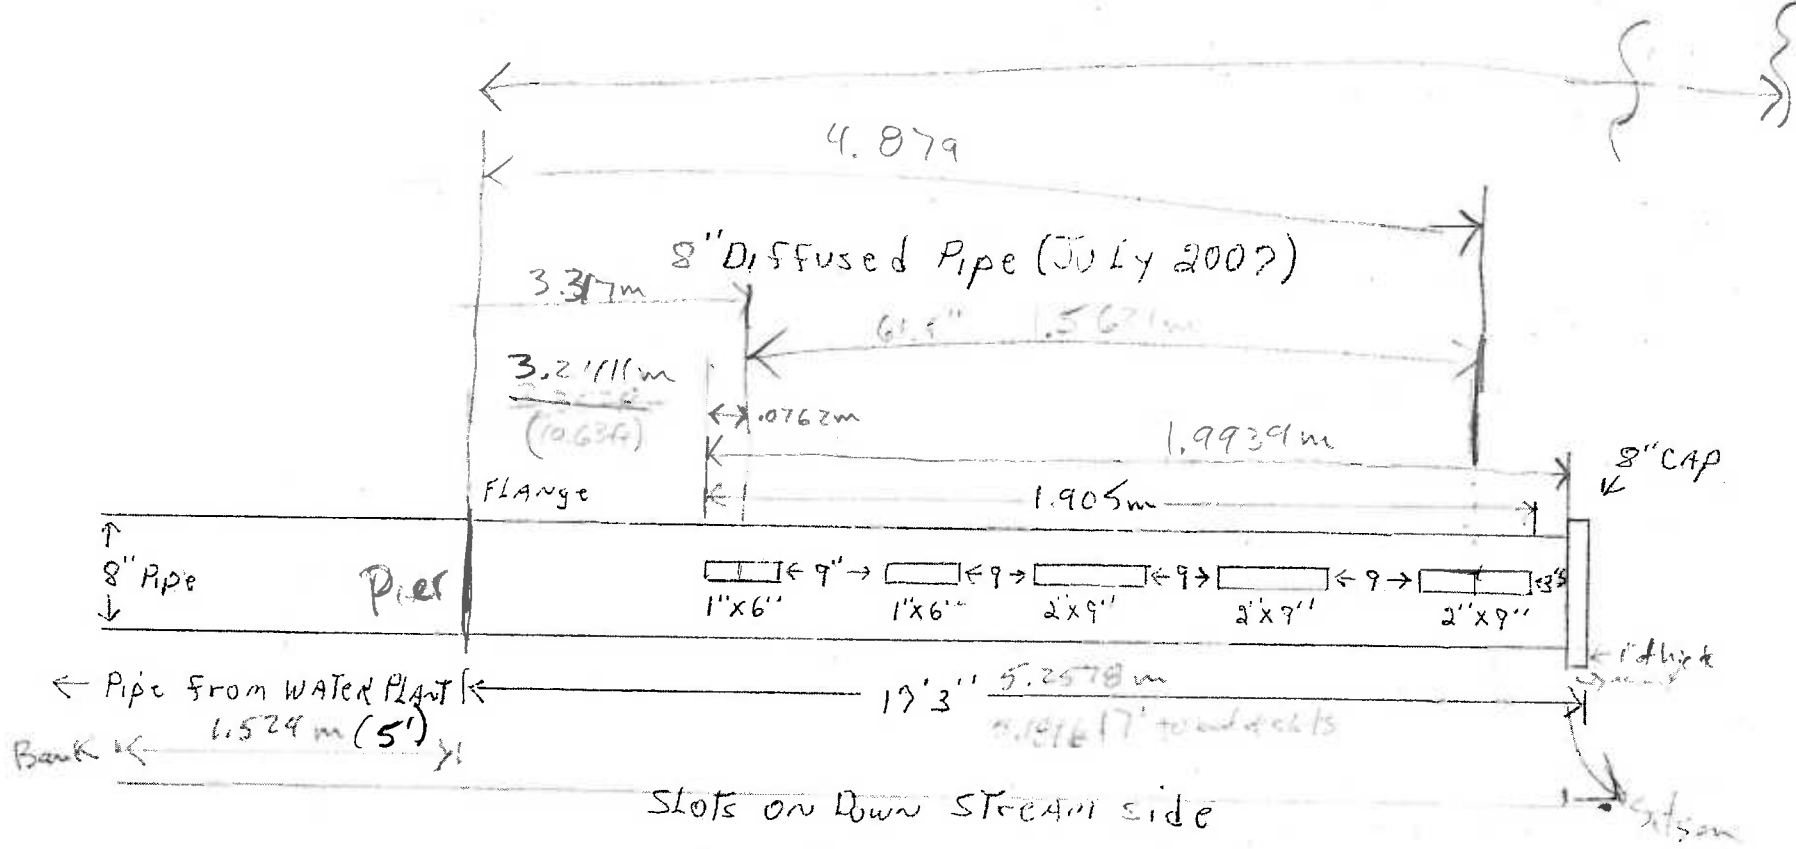 4.879
8" Diffused Pipe (July 2007)
3.317m
1.567
3.2411m
(10.63ft)
.0762m
1.9939m
8" CAP
FLANge
1.905m
8" Pipe
Pier
9" 9 9 9 3"
1"x6" 1"x6" 2"x9" 2"x9" 2"x9"
1" thick
← Pipe from WATER PLANT
17'3" 5.2578 m
1.524 m (5')
17' to end of slots
Bank
SLOTS ON DOWN STREAM side